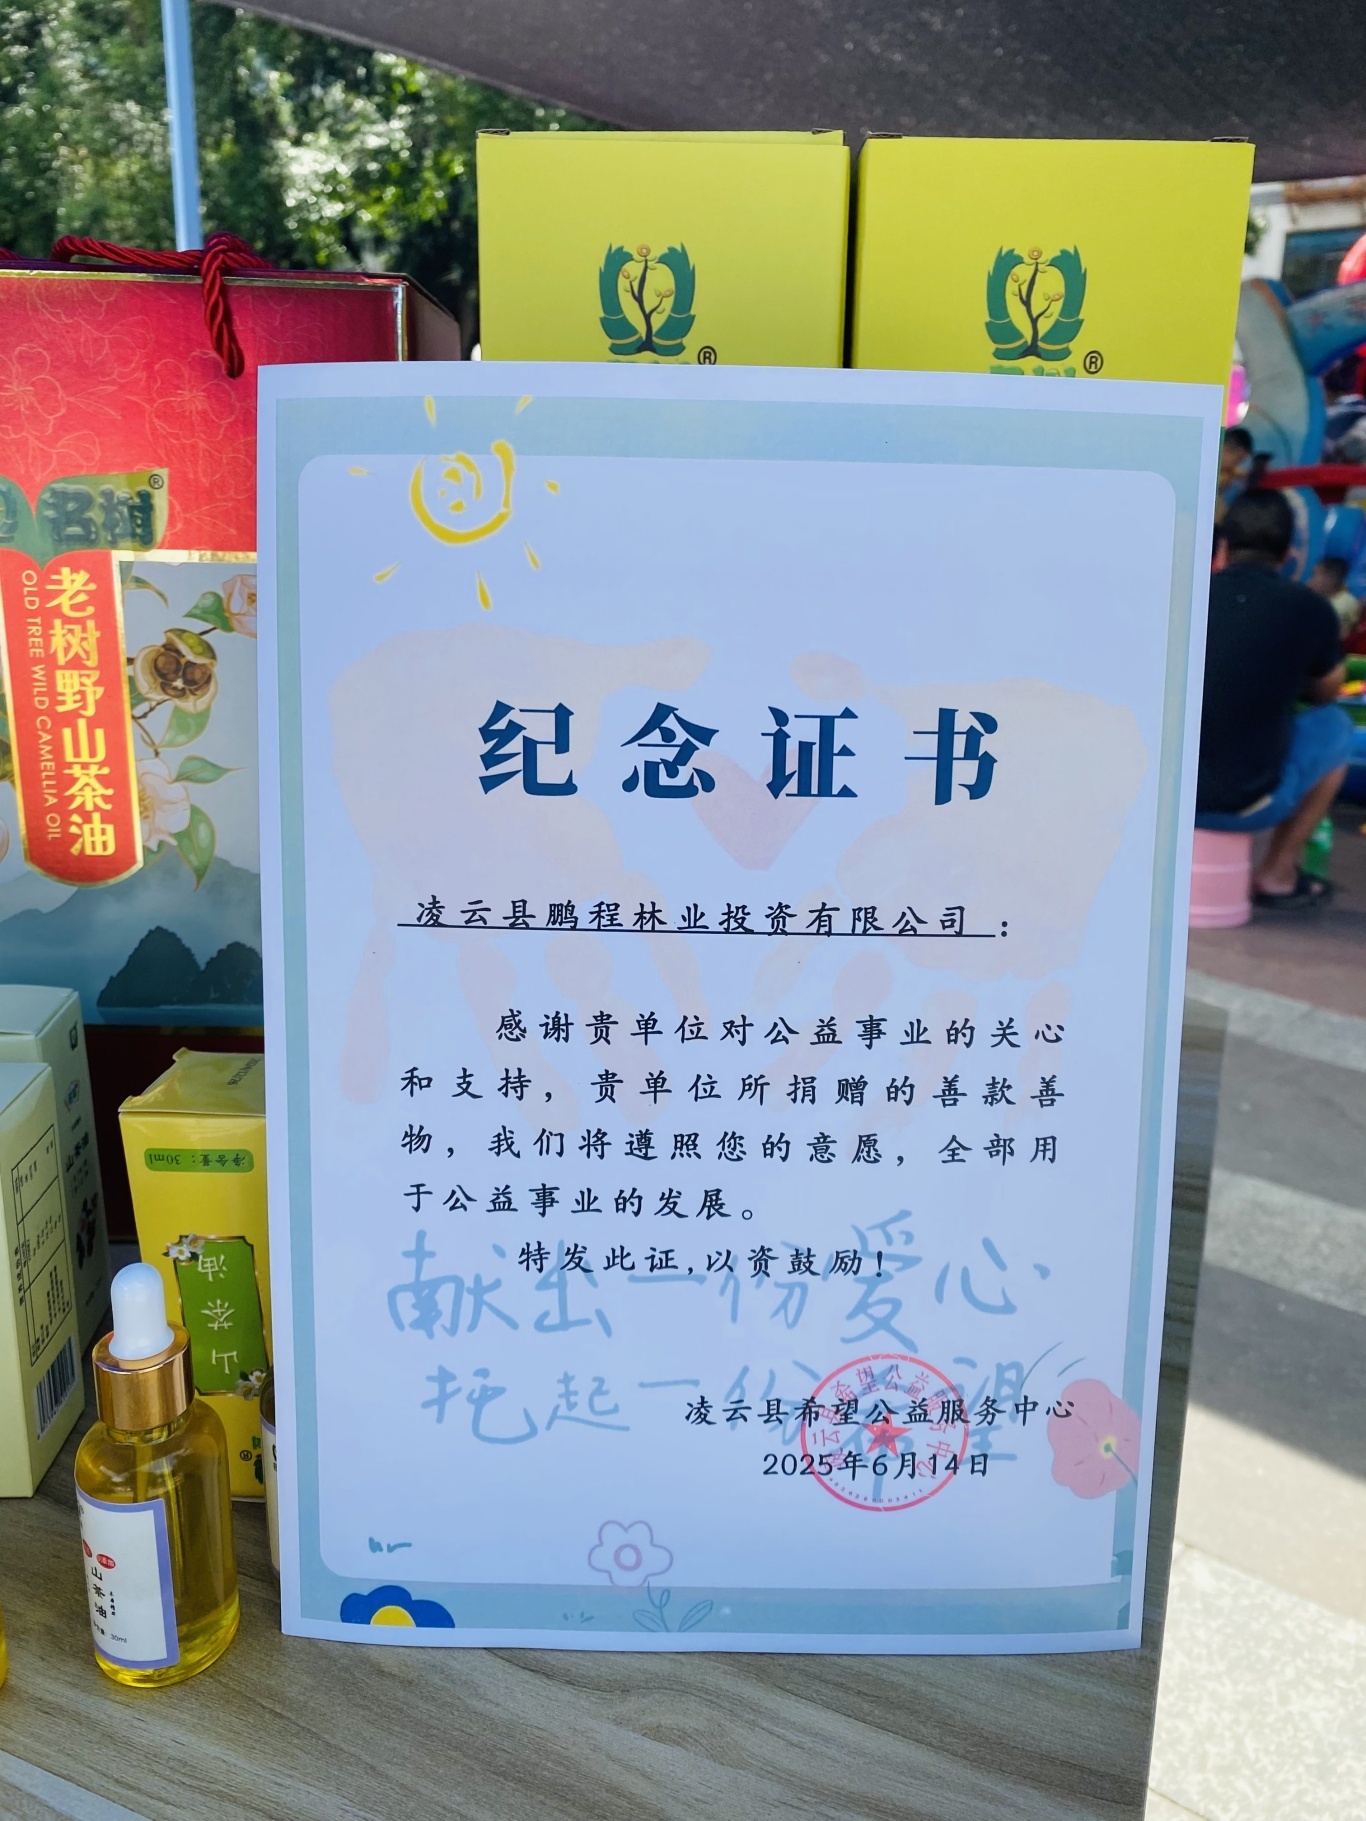 ®
®
名树®
老树野山茶油
OLD TREE WILD CAMELLIA OIL
纪念证书
凌云县鹏程林业投资有限公司：
感谢贵单位对公益事业的关心
和支持，贵单位所捐赠的善款善
物，我们将遵照您的意愿，全部用
于公益事业的发展。
特发此证,以资鼓励！
献出一份爱心
托起一份希望
凌云县希望公益服务中心
2025年6月14日
净含量：30ml
山茶油
山茶油
30ml